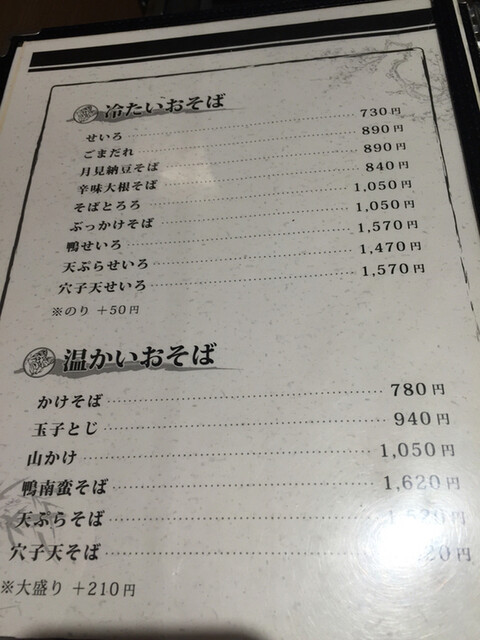 冷たいおそば
せいろ 730円
ごまだれ 890円
月見納豆そば 890円
辛味大根そば 840円
そばとろろ 1,050円
ぶっかけそば 1,050円
鴨せいろ 1,570円
天ぷらせいろ 1,470円
穴子天せいろ 1,570円
※のり +50円
温かいおそば
かけそば 780円
玉子とじ 940円
山かけ 1,050円
鴨南蛮そば 1,620円
天ぷらそば 円
穴子天そば 円
※大盛り +210円